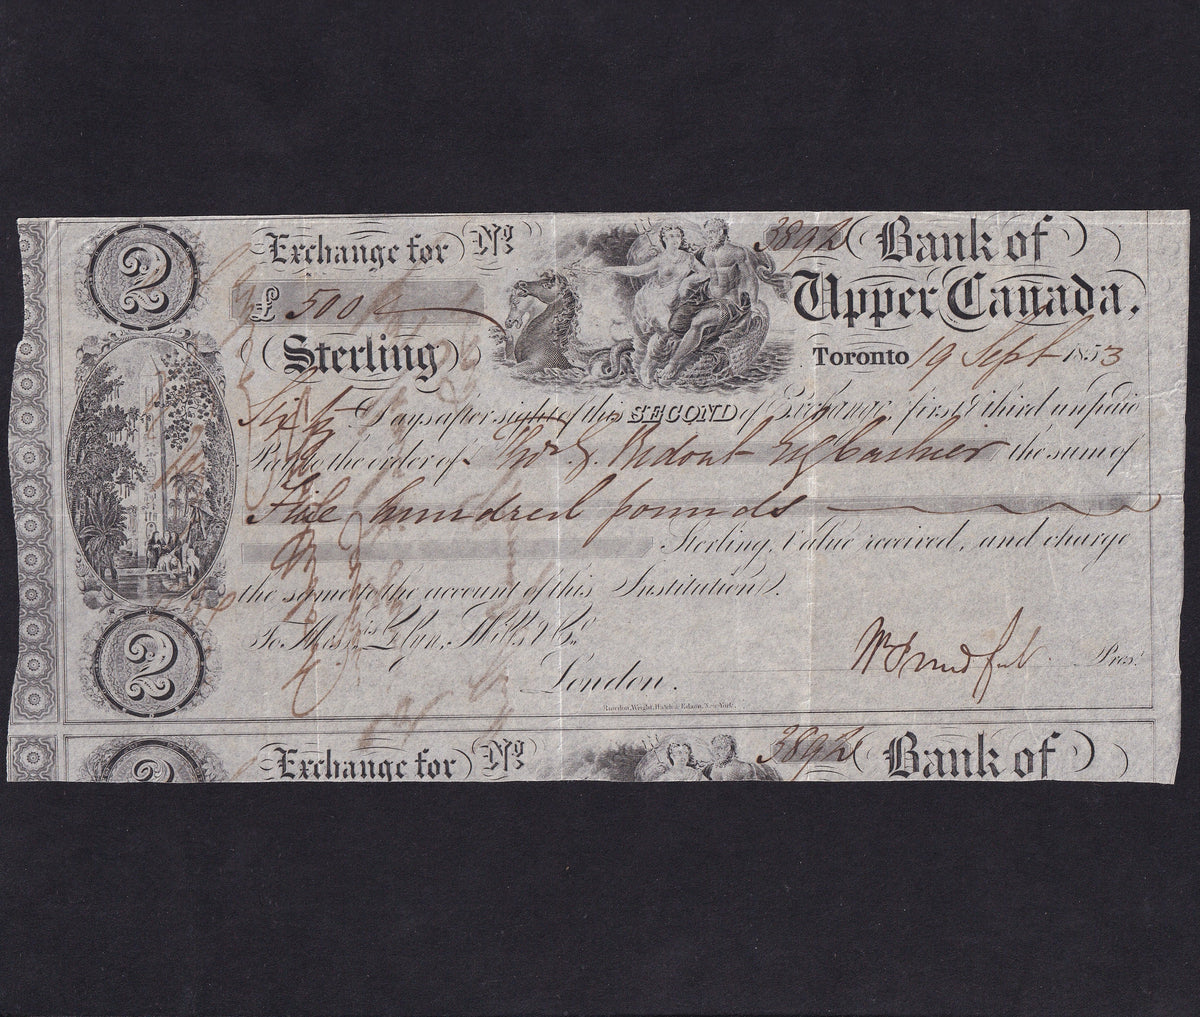 2
Exchange for No 3892 Bank of
£ 500 Upper Canada.
Sterling Toronto 19 Sept 1853
Sixty Days after sight of this SECOND of Exchange, first & third unpaid
Pay to the order of Thos G. Ridout Esq Cashier the sum of
Five hundred pounds
Sterling, Value received, and charge
the same to the account of this Institution.
To Messrs Glyn, Mills & Co.
2
London. Prest
Rawdon, Wright, Hatch & Edson, New-York.
2
Exchange for No 3892 Bank of